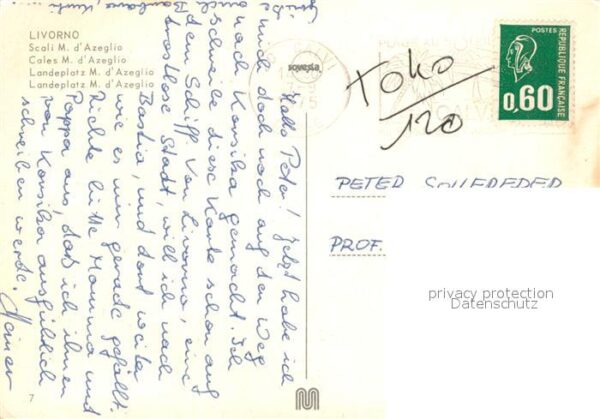 LIVORNO
Scali M. d'Azeglio
Cales M. d'Azeglio
Landeplatz M. d'Azeglio
Landeplatz M. d'Azeglio
Hallo Peter! Jetzt habe ich
mich doch noch auf den Weg
nach Korsika gemacht. Ich
schreibe diese Karte schon auf
dem Schiff von Livorno, eine
trostlose Stadt, will ich nach
Bastia, und dort weiter
wie es mir gerade gefällt.
Richte bitte Mamma und
Pappa aus, daß ich ihnen
von Korsika ausführlich
schreiben werde.
7
sovesta
Toko
120
POSTES
REPUBLIQUE FRANÇAISE
0,60
PETER
PROF.
privacy protection
Datenschutz